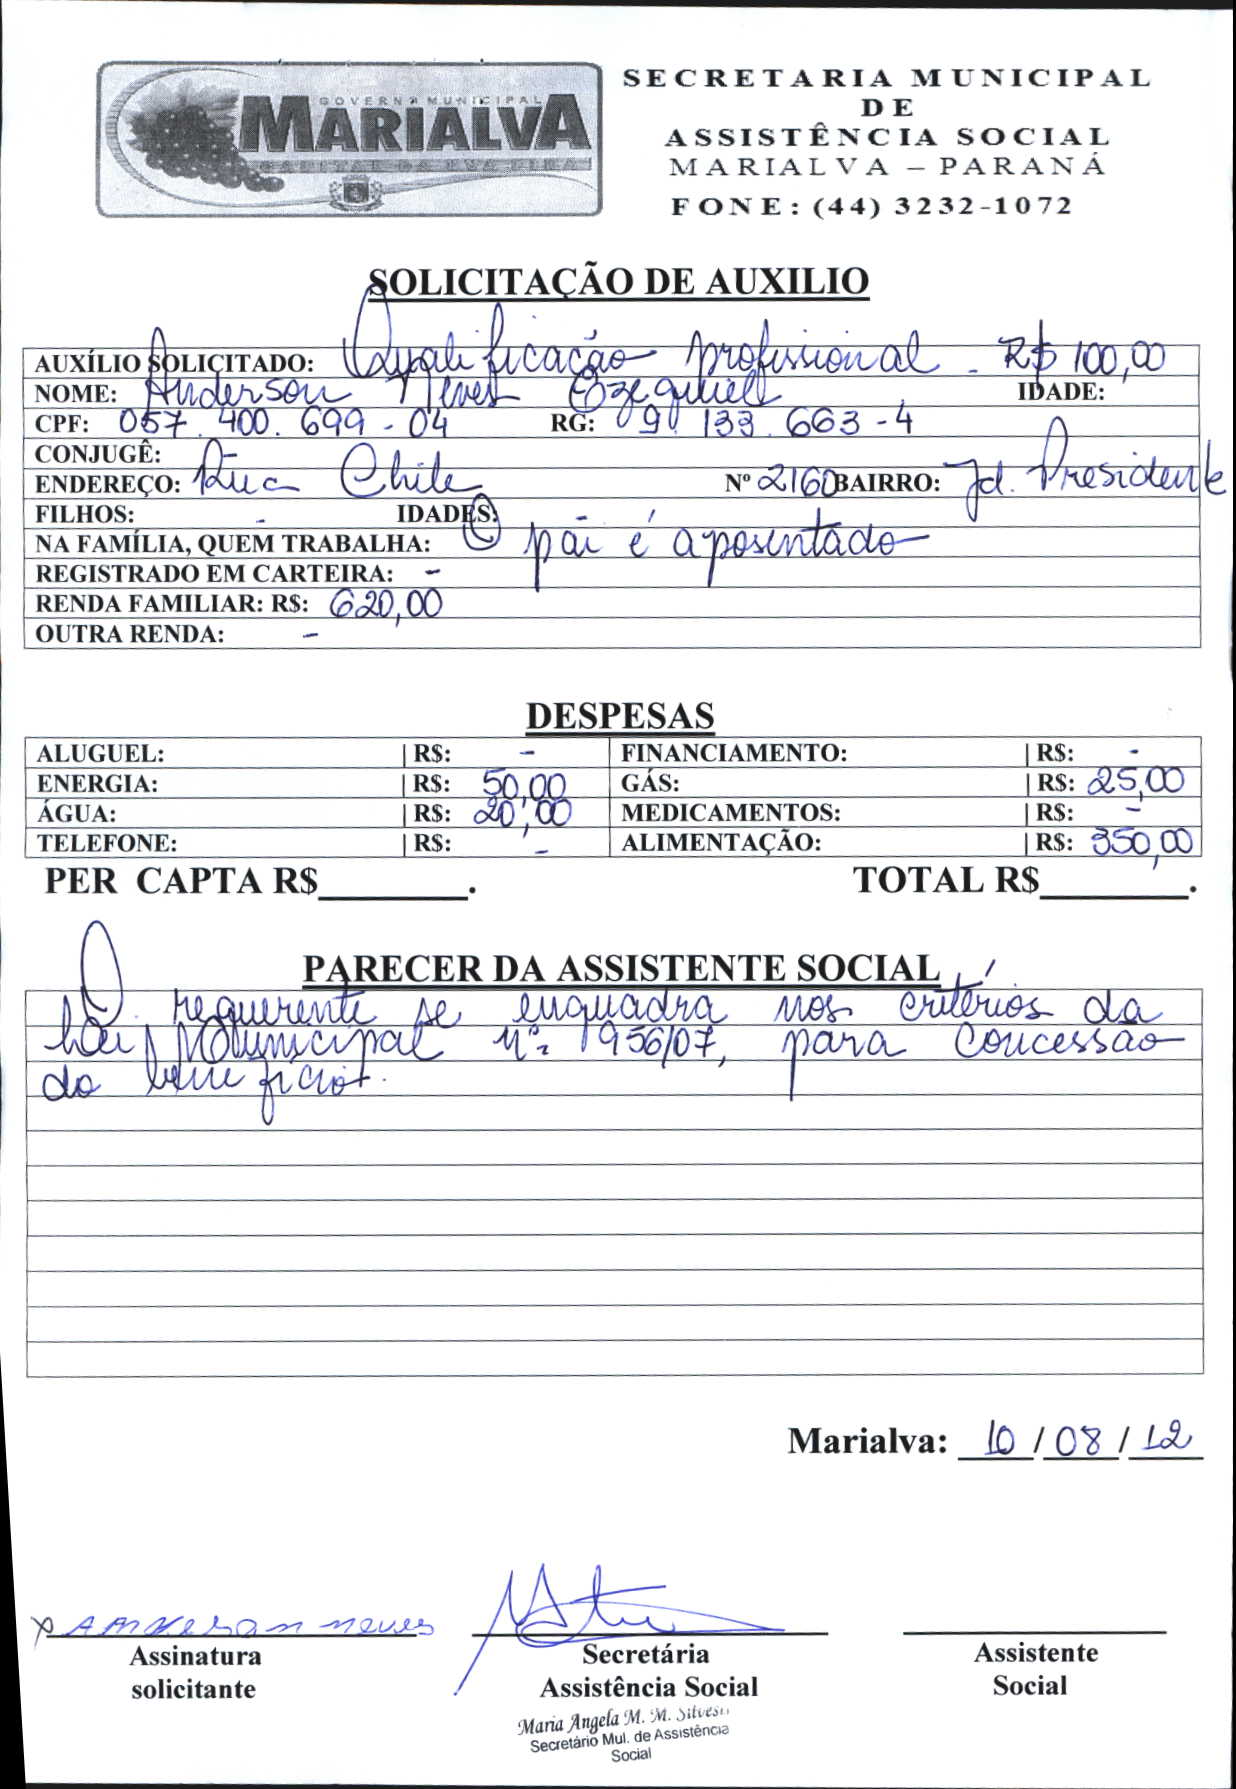 GOVERNO MUNICIPAL
MARIALVA
CAPITAL DA UVA FINA
SECRETARIA MUNICIPAL
DE
ASSISTÊNCIA SOCIAL
MARIALVA – PARANÁ
FONE: (44) 3232-1072
SOLICITAÇÃO DE AUXILIO
AUXÍLIO SOLICITADO: Qualificação profissional - R$ 100,00
NOME: Anderson Neves Ezequiel IDADE:
CPF: 057.400.699-04 RG: 9.133.663-4
CONJUGÊ: -
ENDEREÇO: Rua Chile Nº 2160 BAIRRO: Jd. Presidente
FILHOS: - IDADES:
NA FAMÍLIA, QUEM TRABALHA: O pai é aposentado
REGISTRADO EM CARTEIRA: -
RENDA FAMILIAR: R$: 620,00
OUTRA RENDA: -
DESPESAS
ALUGUEL: | R$: - FINANCIAMENTO: | R$: -
ENERGIA: | R$: 50,00 GÁS: | R$: 25,00
ÁGUA: | R$: 20,00 MEDICAMENTOS: | R$: -
TELEFONE: | R$: - ALIMENTAÇÃO: | R$: 350,00
PER CAPTA R$________. TOTAL R$________.
PARECER DA ASSISTENTE SOCIAL
O requerente se enquadra nos critérios da
Lei Municipal nº 1956/07, para concessão
do benefício.
Marialva: 10 / 08 / 12
x Anderson neves
Assinatura
solicitante
Secretária
Assistência Social
Maria Angela M. M. Silvestr
Secretário Mul. de Assistência
Social
Assistente
Social